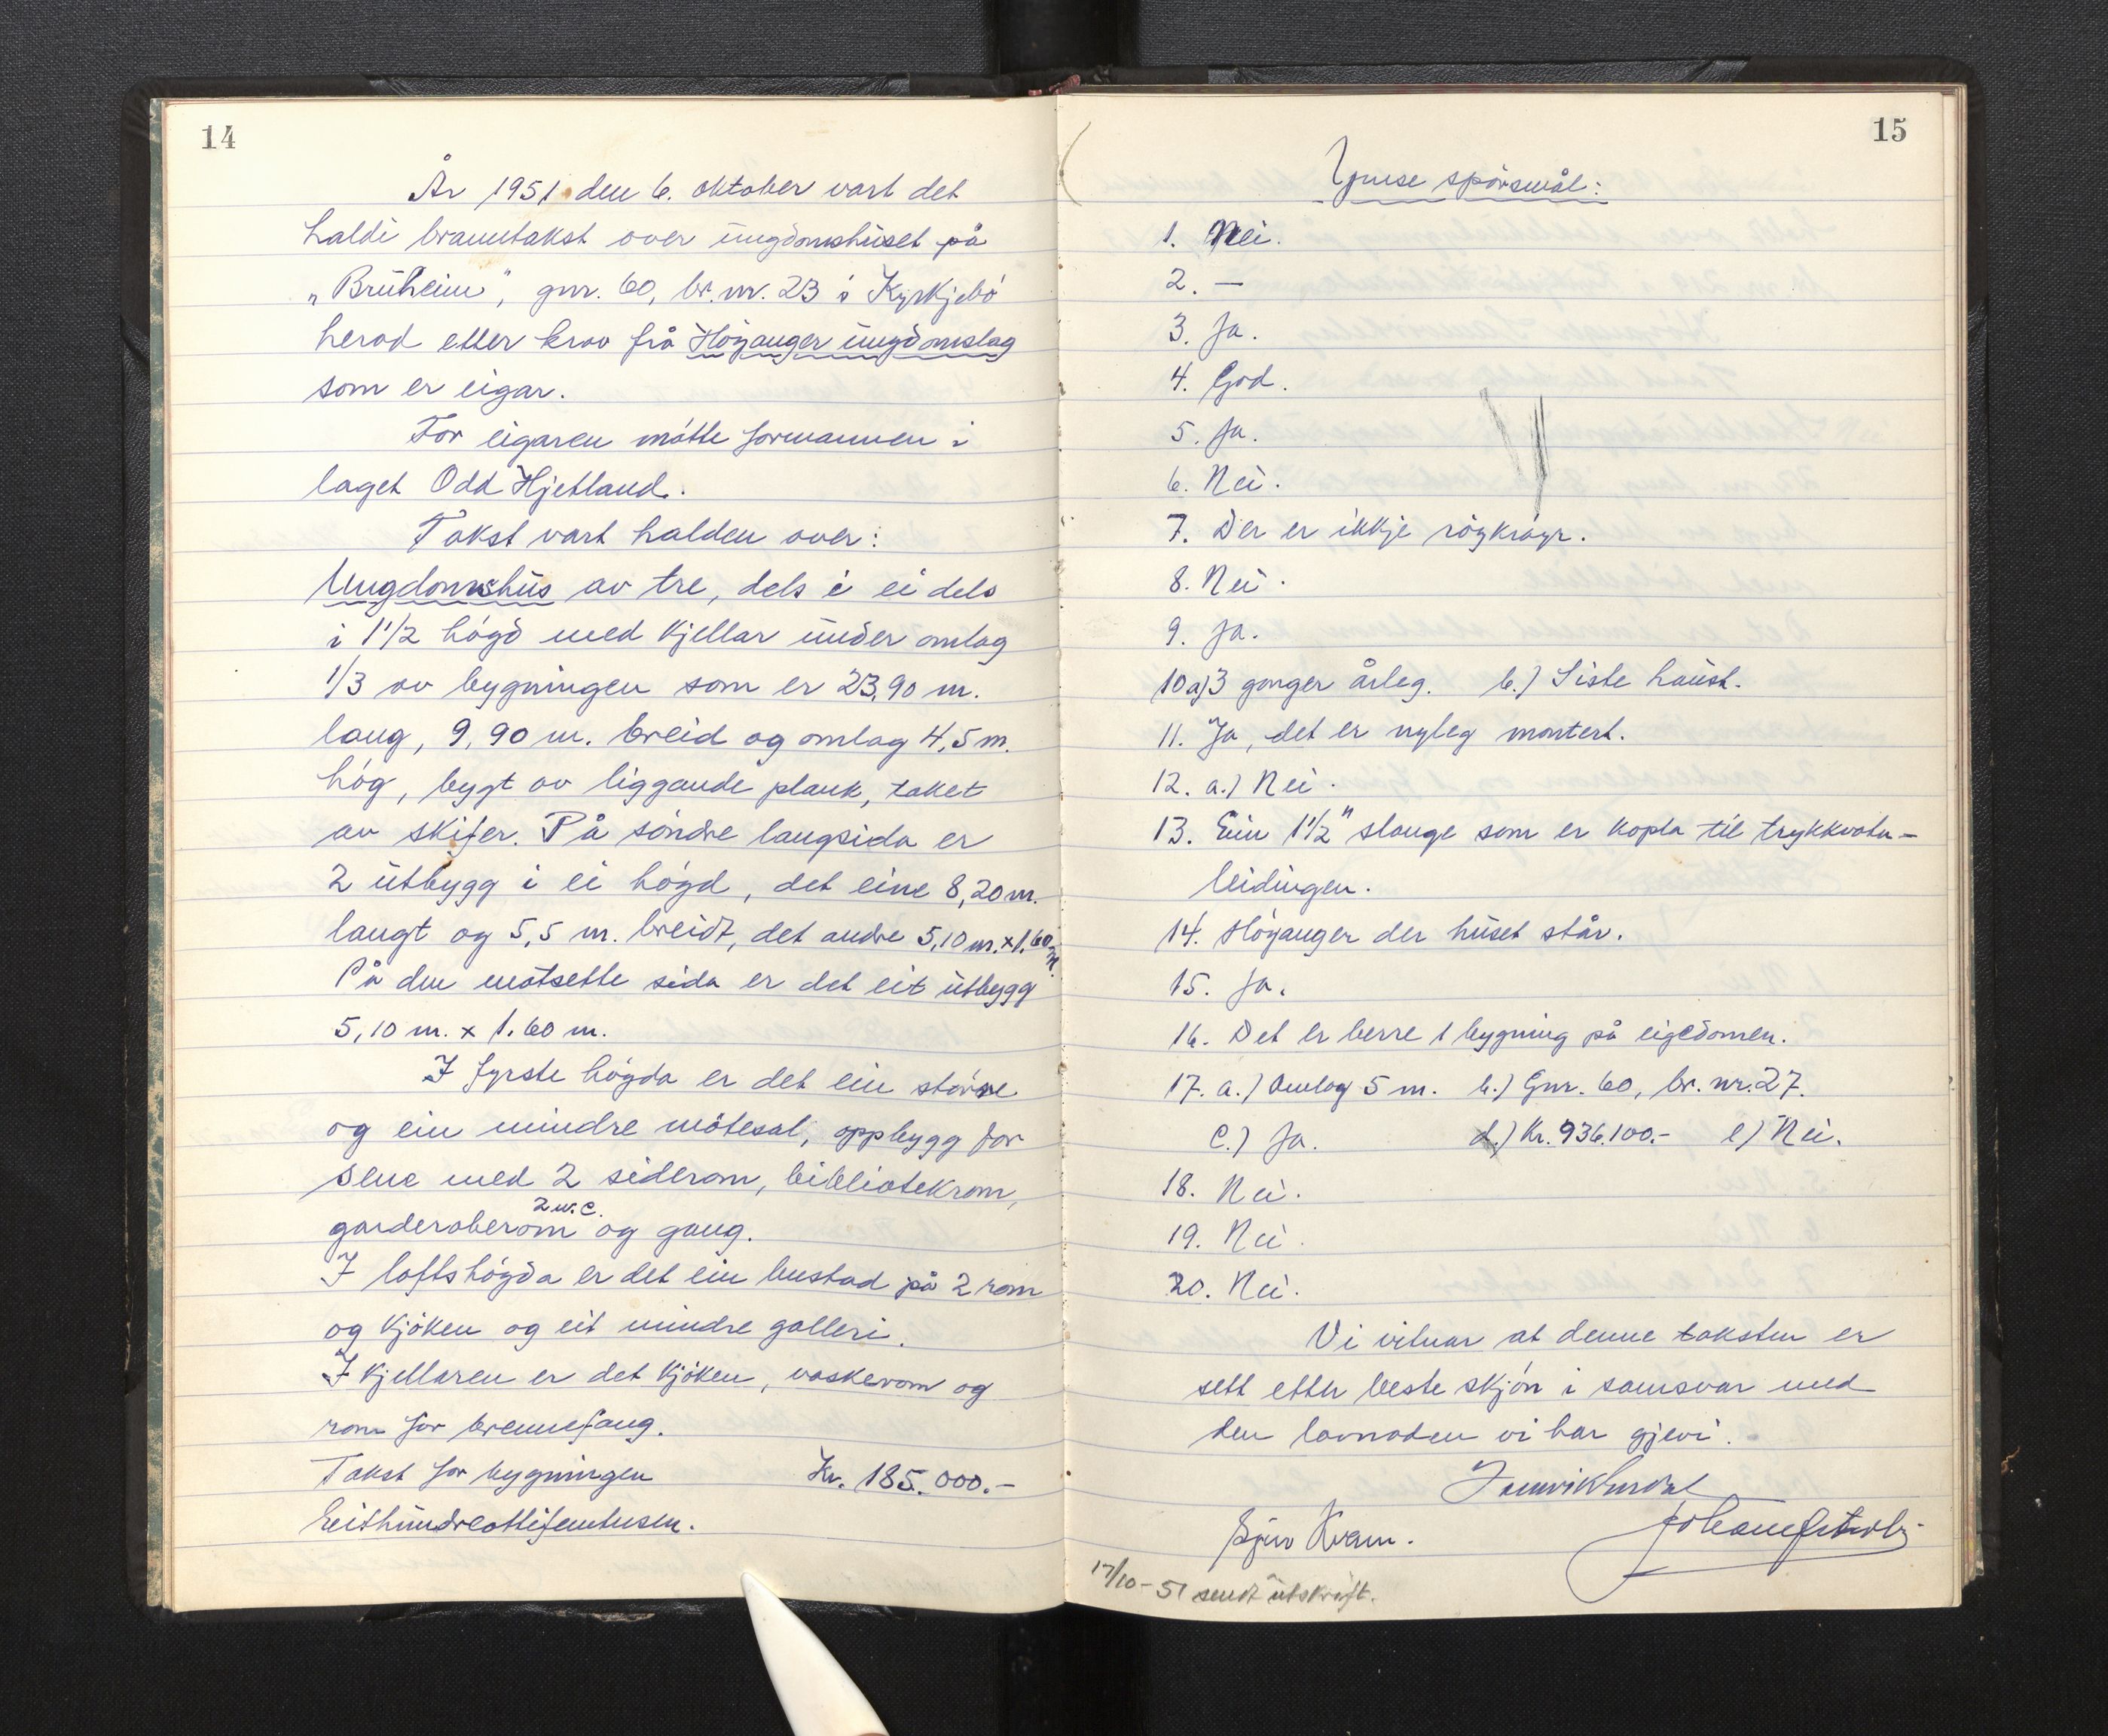 14
År 1951 den 6. oktober vart det
haldi branntakst over ungdomshuset på
„Bruheim", gnr. 60, br. nr. 23 i Kyrkjebø
herad etter krav frå Höyanger ungdomslag
som er eigar.
For eigaren møtte formannen i
laget Odd Hjetland.
Takst vart halden over:
Ungdomshus av tre, dels i ei dels
i 1 1/2 högd med kjellar under omlag
1/3 av bygningen som er 23,90 m.
lang, 9,90 m. breid og omlag 4,5 m.
hög, bygt av liggande plank, taket
av skifer. På söndre langsida er
2 utbygg i ei högd, det eine 8,20 m.
langt og 5,5 m. breidt, det andre 5,10 m. x 1.60 m.
På den motsette sida er det eit utbygg
5,10 m. x 1.60 m.
I fyrste högda er det ein större
og ein mindre mötesal, oppbygg for
sene med 2 siderom, bibliotekrom,
2 w.c.
garderoberom og gang.
I loftshögda er det ein bustad på 2 rom
og kjöken og eit mindre galleri.
I kjellaren er det kjöken, vaskerom og
rom for brennefang.
Takst for bygningen Kr. 185.000.-
Eithundreottifemtusen.
15
Ymse spörsmål:
1. Nei.
2. —
3. Ja.
4. God.
5. Ja.
6. Nei.
7. Der er ikkje röykröyr.
8. Nei.
9. Ja.
10 a) 3 gonger årleg. b.) Siste haust.
11. Ja, det er nyleg montert.
12. a.) Nei.
13. Ein 1 1/2" slange som er kopla til trykkvatn-
leidingen.
14. Höyanger der huset står.
15. Ja.
16. Det er berre 1 bygning på eigedomen.
17. a.) Omlag 5 m. b.) Gnr. 60, br. nr. 27.
c.) Ja. d.) Kr. 936.100.- e) Nei.
18. Nei.
19. Nei.
20. Nei.
Vi vitnar at denne taksten er
sett etter beste skjön i samsvar med
den lovnaden vi har gjevi.
Kvam.
17/10-51 sendt utskrift.